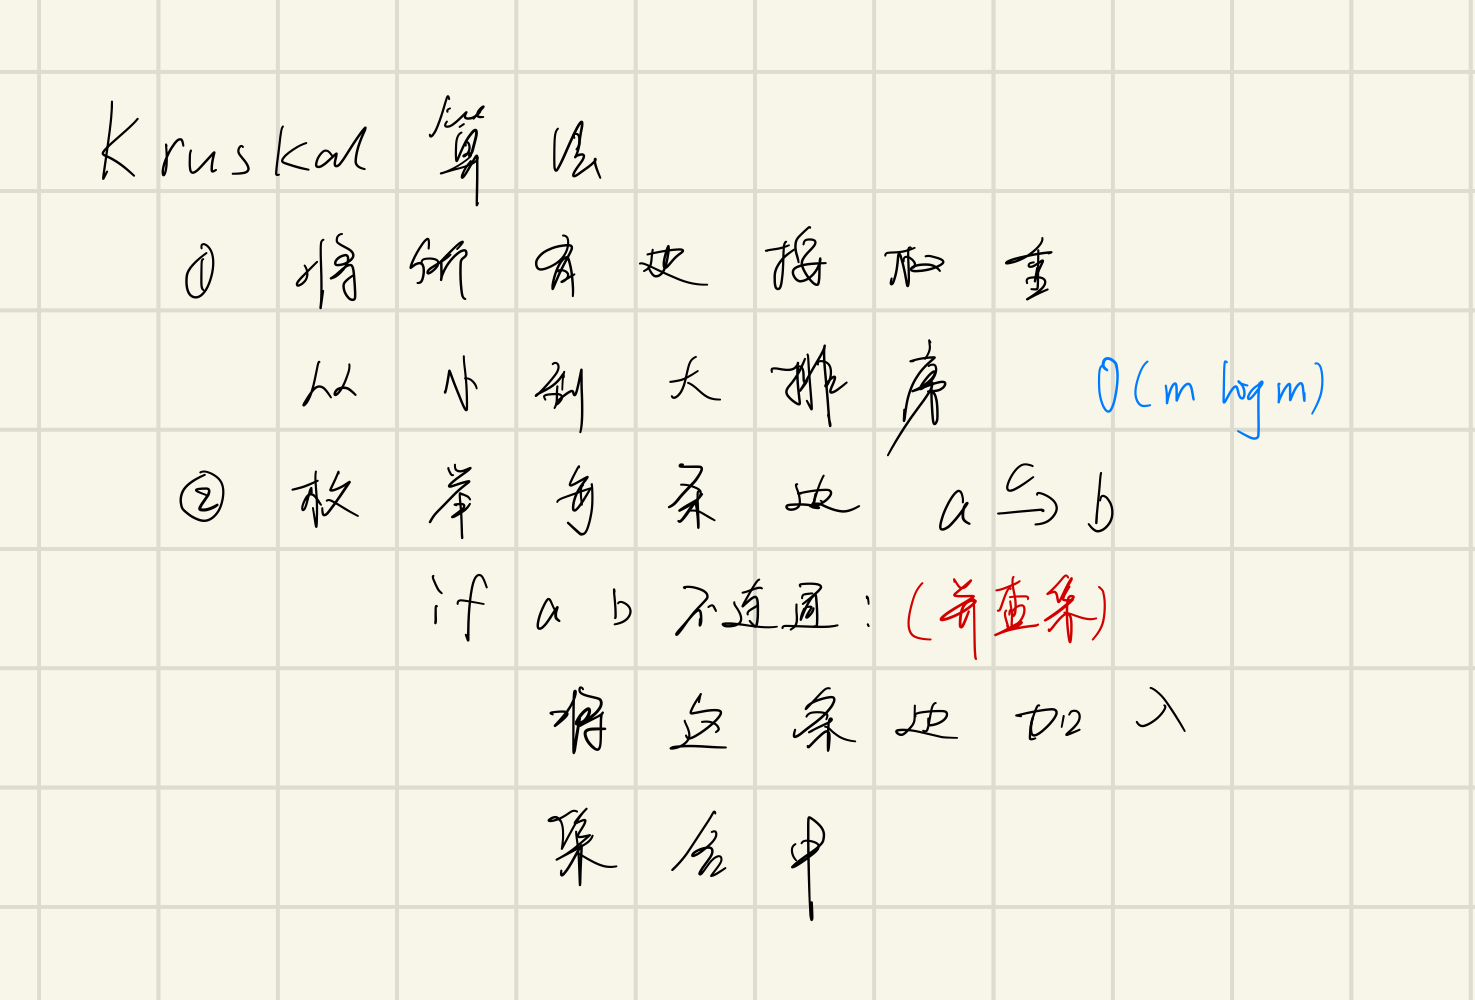 Kruskal 算法
① 将所有边按权重
从小到大排序 O(m log m)
② 枚举每条边 a与b
if a b 不连通: (并查集)
将这条边加入
集合中